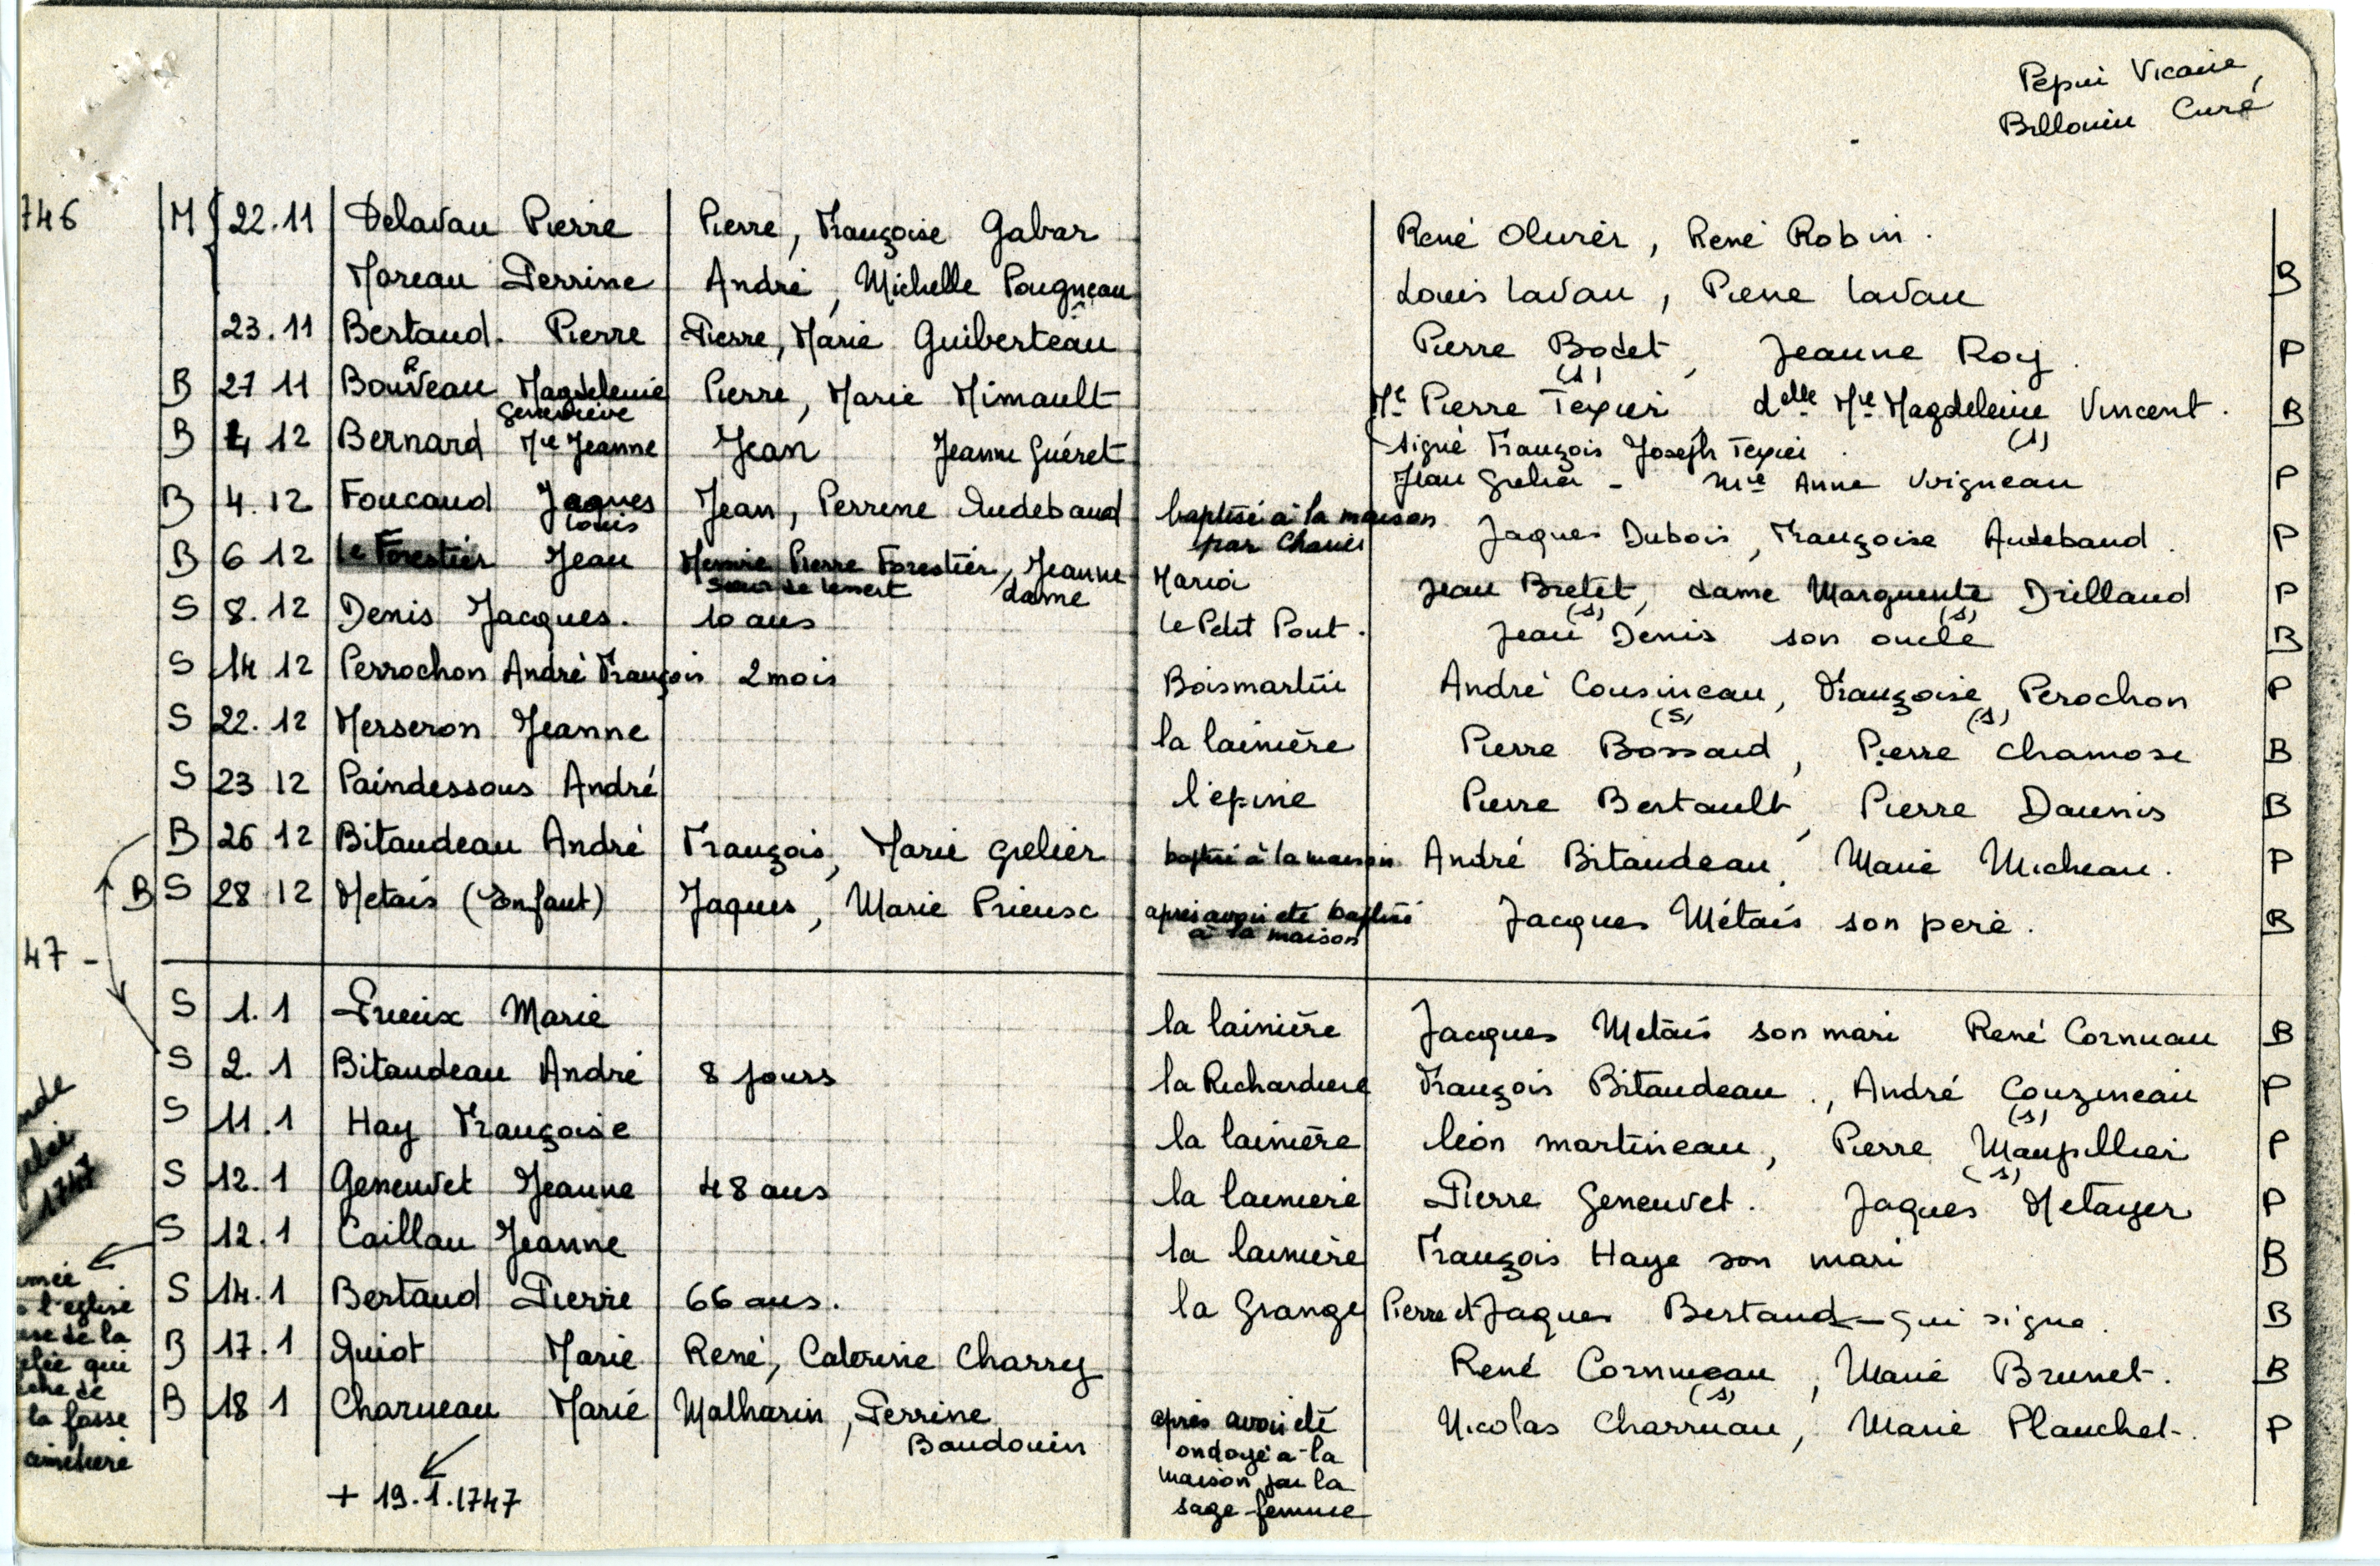 Pepin Vicaire,
Billouin Curé
746 M 22.11 Delavau Pierre Pierre, Françoise Gabar René Olivier, René Robin.
Moreau Perrine André, Michelle Pougneau Louis Lavau, Pierre Lavau B
23.11 Bertaud. Pierre Pierre, Marie Guiberteau Pierre Bodet, Jeanne Roy. P
(s)
B 27 11 Magdeleine Pierre, Marie Mimault Me Pierre Texier delle Mie Magdeleine Vincent. B
Geneviève (s)
B 4 12 Bernard Mie Jeanne Jean Jeanne Guéret signé François Joseph Texier.
Jean Grelier - Mie Anne Voigneau P
B 4.12 Foucaud Jaques Jean, Perrine Audebaud baptisé à la maison
Louis par Jaques Dubois, Françoise Audebaud. P
B 6 12 Le Forestier Jean Pierre Forestier, Jeanne Maria Jean Bretet, dame Marguerite Drilland P
dame (s) (s)
S 8.12 Denis Jacques. 10 ans Le Petit Pont. Jean Denis son oncle B
S 14 12 Perrochon André François 2 mois Boismartin André Cousineau, Françoise Perochon P
(s) (s)
S 22.12 Merseron Jeanne la lainière Pierre Bossard, Pierre Chamose B
S 23 12 Paindessous André l'épine Pierre Bertault, Pierre Daunis B
B 26 12 Bitaudeau André François, Marie Grelier baptisé à la maison André Bitaudeau, Marie Micheau. P
B S 28 12 Metais (Enfant) Jaques, Marie Prieux après avoir été baptisé Jacques Métais son père. B
à la maison
47 -
S 1.1 Prieux Marie la lainière Jacques Metais son mari René Cornuau B
S 2.1 Bitaudeau André 8 jours la Richardiere François Bitaudeau., André Couzineau P
(s)
S 11.1 Hay Françoise la lainière Léon martineau, Pierre Maupillier P
(s)
S 12.1 Geneuvet Jeanne 48 ans la lainiere Pierre Geneuvet. Jaques Metayer P
1747
S 12.1 Caillau Jeanne la lainière François Haye son mari B
S 14.1 Bertaud Pierre 66 ans. la Grange Pierre et Jaques Bertaud - qui signe. B
l'eglise
de la
B 17.1 Quiot Marie René, Caterine Charry René Cornueau, Marie Brunet. B
qui
(s)
de
B 18 1 Charueau Marie Matharin, Perrine après avoir été Nicolas Charruau, Marie Planchet. P
la fosse
Baudouin ondoyé à la
maison par la
+ 19.1.1747 sage-femme